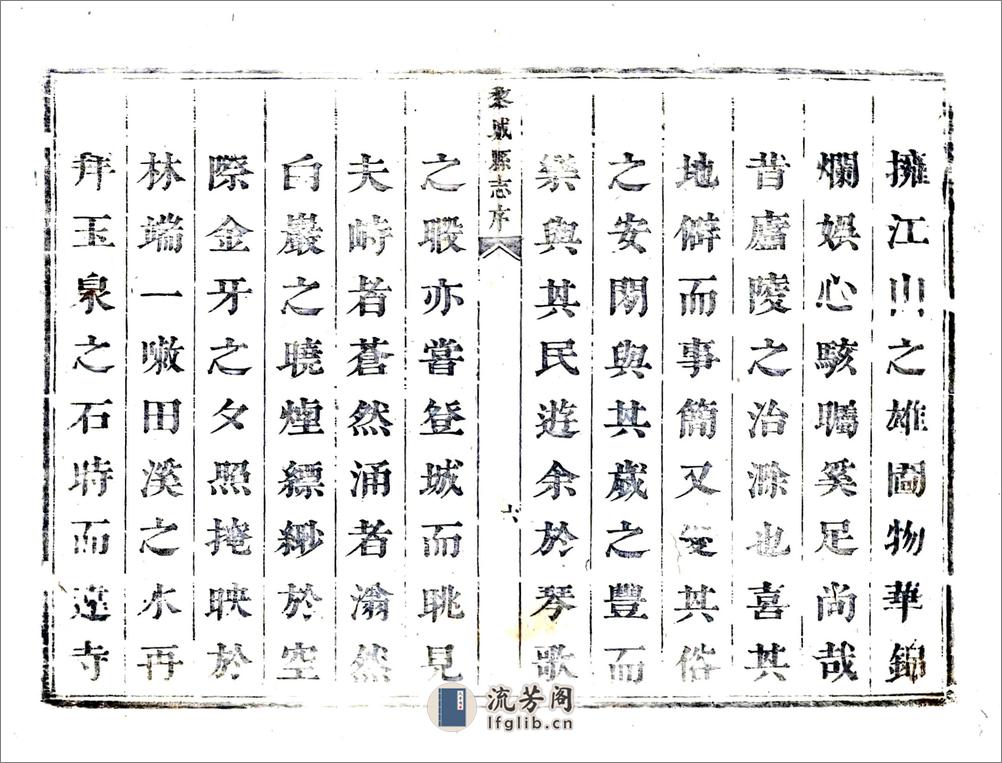 擁江山之雄圖物華錦
爛娛心駭矚奚足尚哉
昔廬陵之治滁也喜其
地僻而事簡又愛其俗
之安閒與其歲之豐而
樂與其民遊余於琴歌
黎城縣志序
六
之暇亦嘗登城而眺見
夫峙者蒼然涌者滃然
白巖之曉煙縹緲於空
際金牙之夕照掩映於
林端一嗽田溪之水再
拜玉泉之石時而蓮寺
流芳阁
lfglib.cn